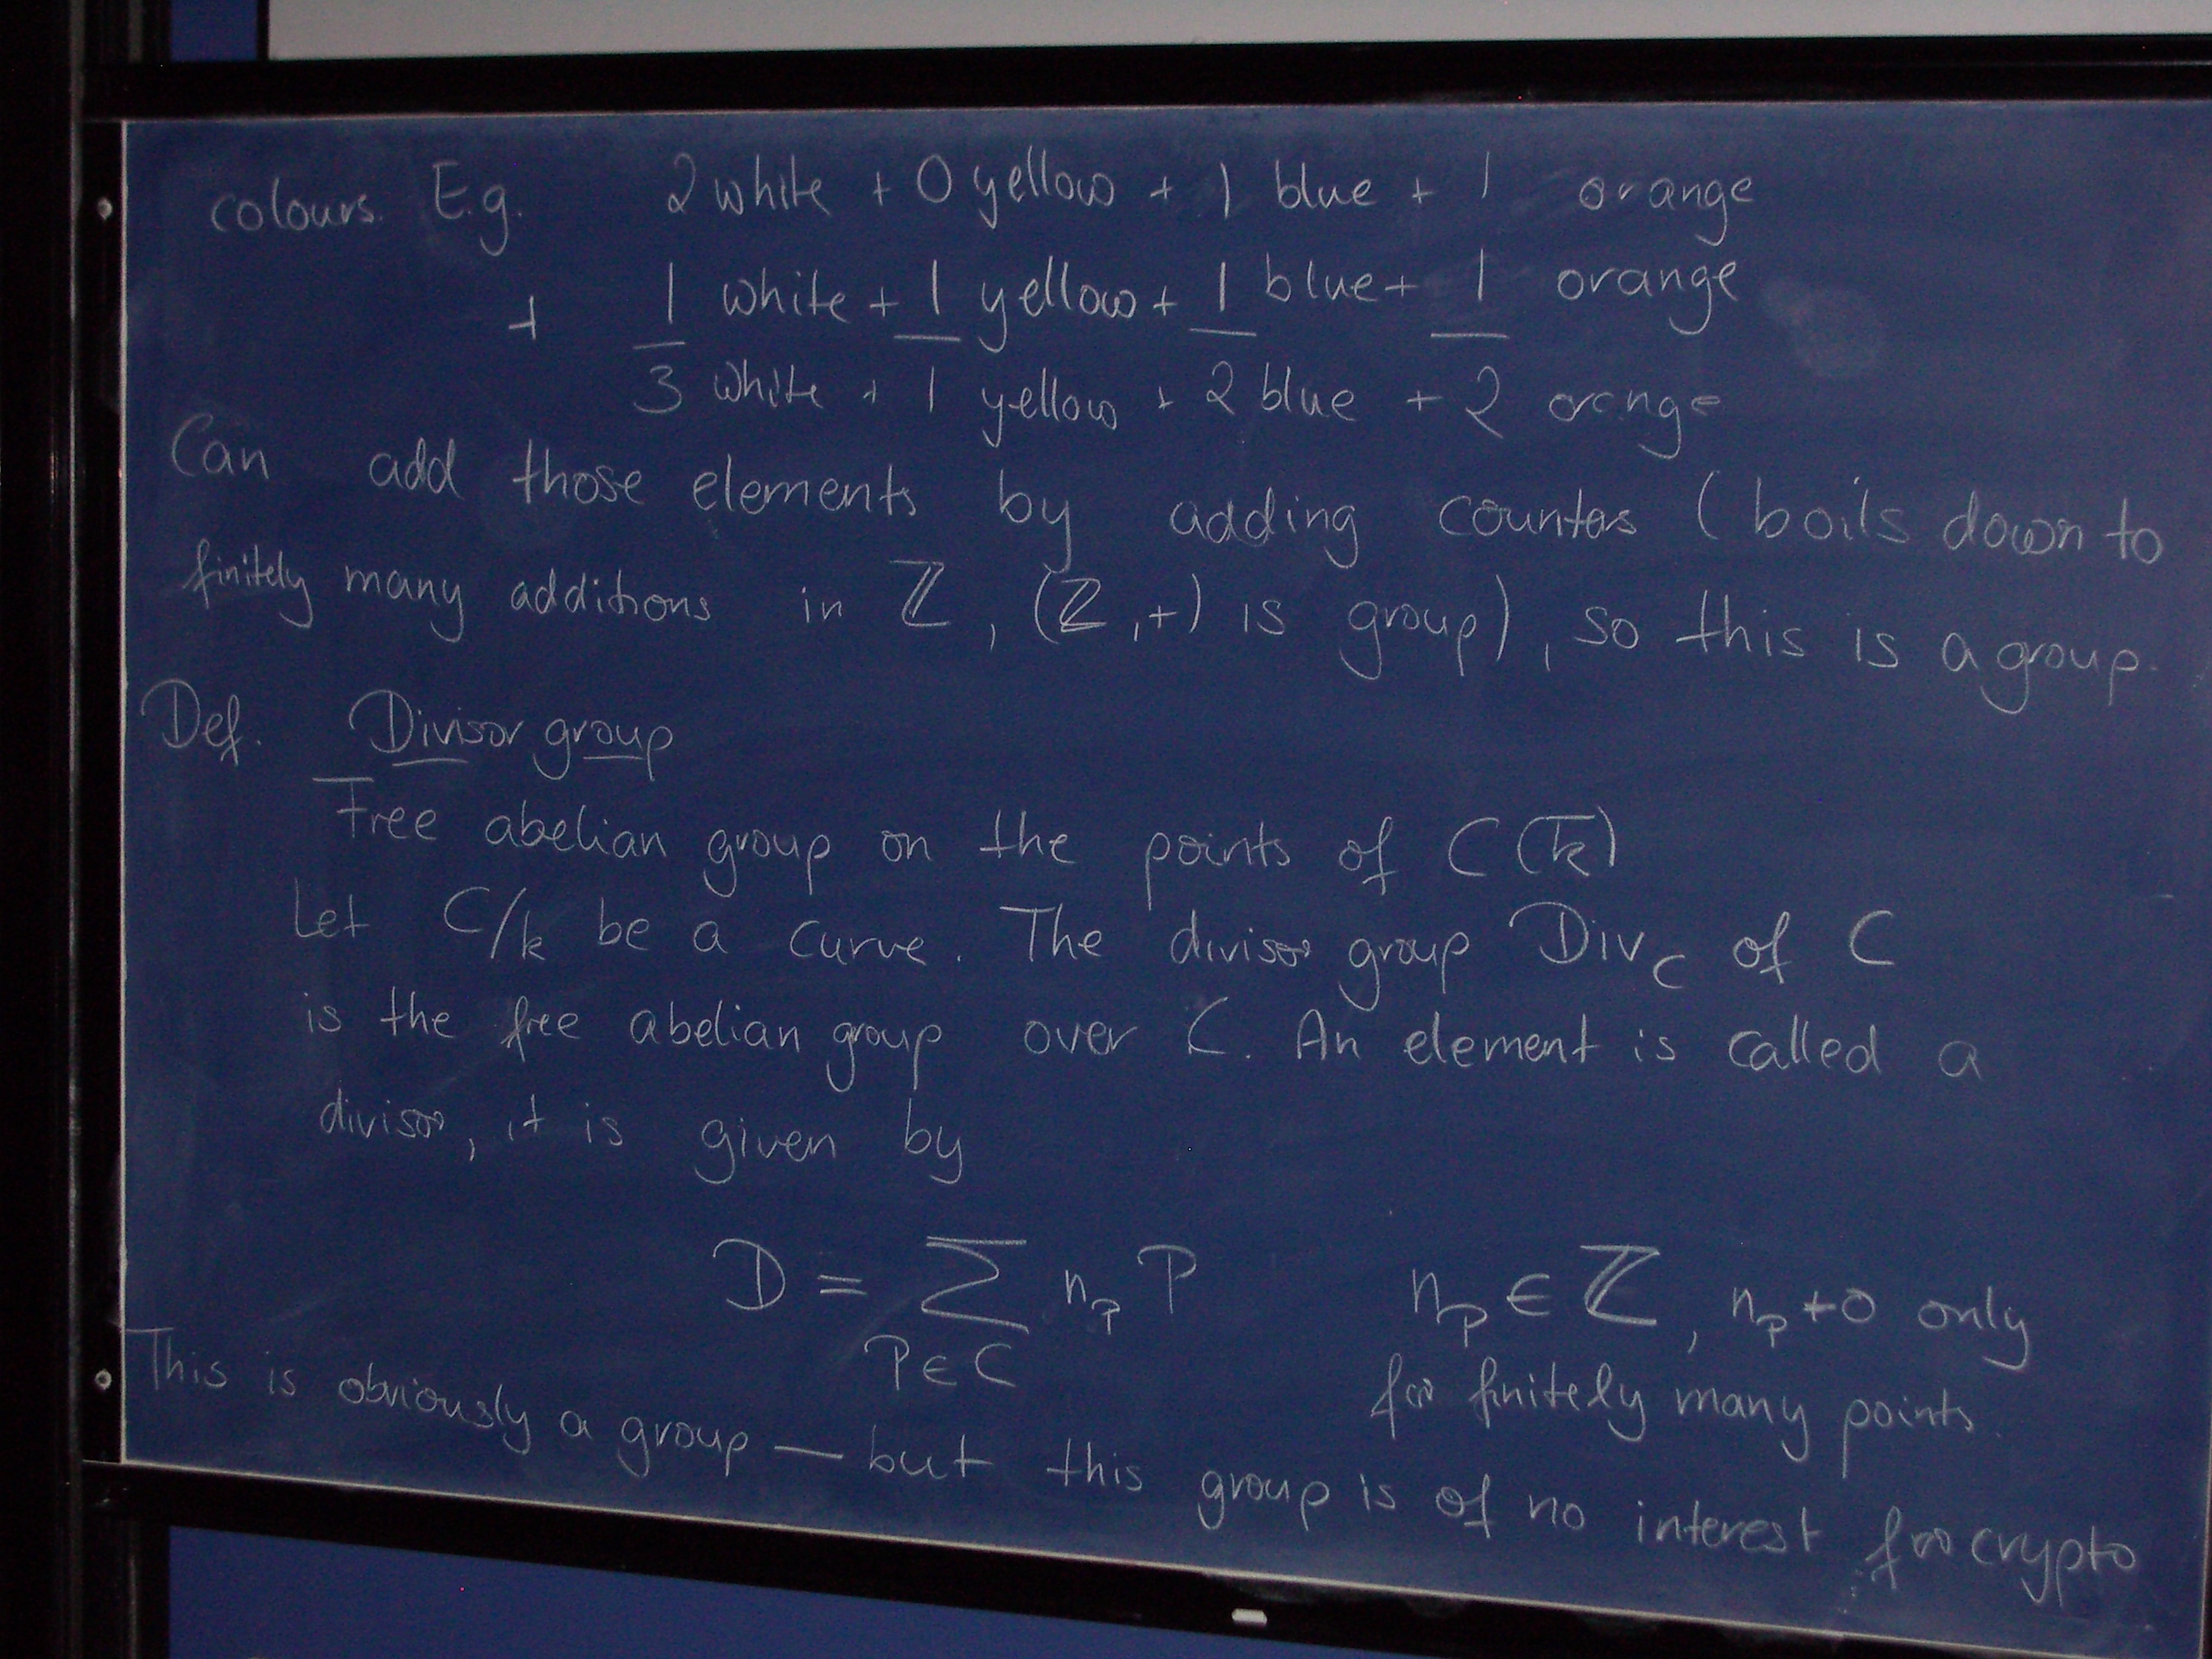 colours. E.g. 2 white + 0 yellow + 1 blue + 1 orange
+ 1 white + 1 yellow + 1 blue + 1 orange
3 white + 1 yellow + 2 blue + 2 orange
Can add those elements by adding counters (boils down to
finitely many additions in ℤ, (ℤ,+) is group), so this is a group.
Def. Divisor group
Free abelian group on the points of C(k̄)
Let C/k be a curve. The divisor group Div_C of C
is the free abelian group over C. An element is called a
divisor, it is given by
D = ∑ n_P P n_P ∈ ℤ, n_P ≠ 0 only
P∈C for finitely many points.
This is obviously a group — but this group is of no interest for crypto